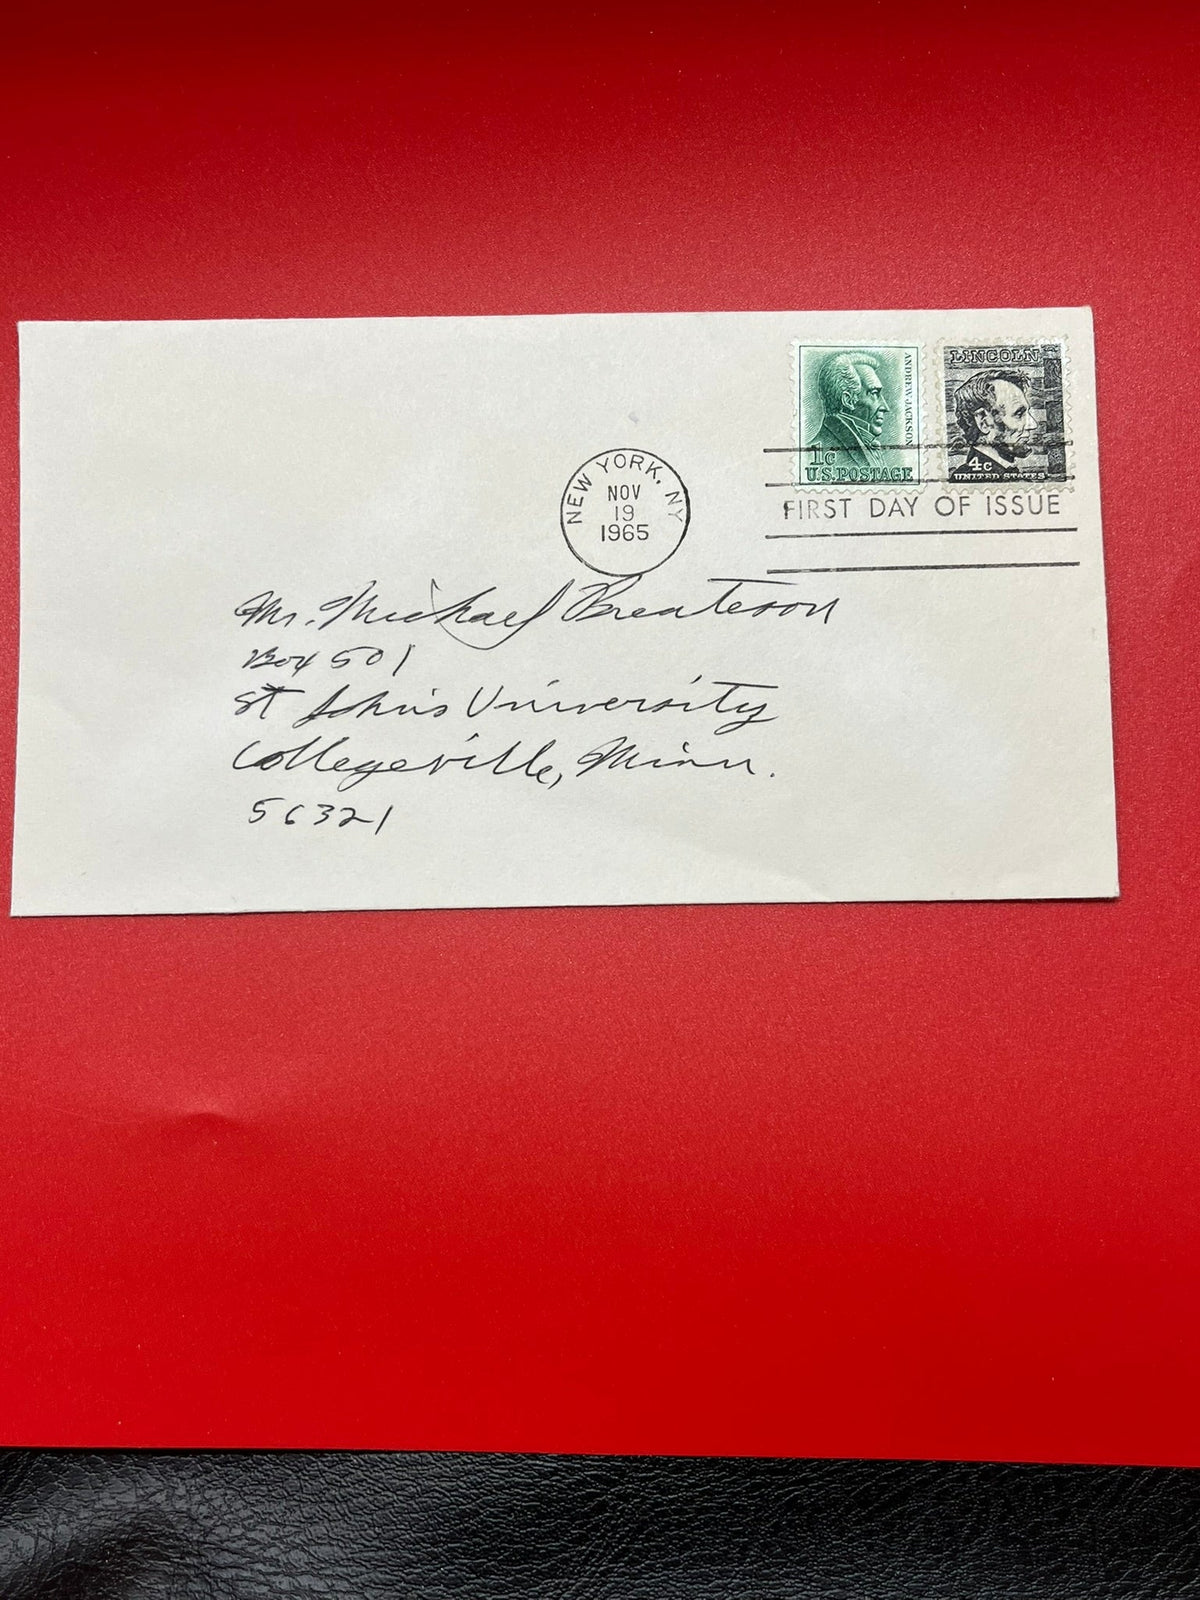 ANDREW JACKSON
1c
U.S. POSTAGE
LINCOLN
4c
UNITED STATES
NEW YORK, NY
NOV
19
1965
FIRST DAY OF ISSUE
Mr. Michael
Box 501
St John's University
Collegeville, Minn.
56321